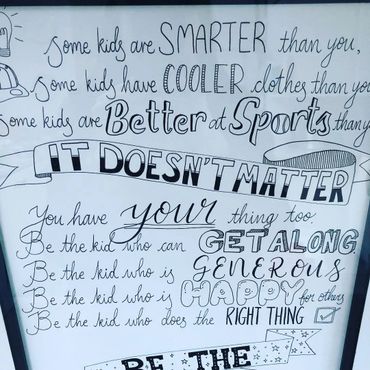 Some kids are SMARTER than you,
Some kids have COOLER clothes than you
Some kids are Better at Sports than you
IT DOESN'T MATTER
You have your thing too.
Be the kid who can GET ALONG.
Be the kid who is GENEROUS
Be the kid who is HAPPY for others
Be the kid who does the RIGHT THING
BE THE